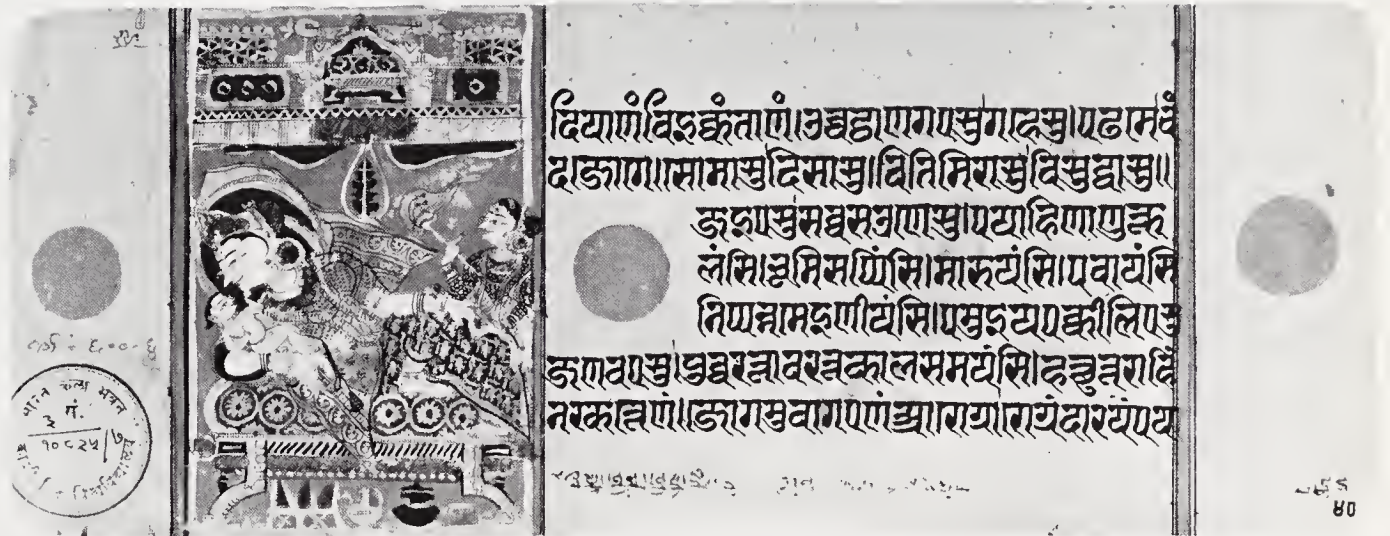 दियाणंविइक्कंताणं।उच्चट्ठाणगएसुगहेसु।पढमेचं
दजोगे।सोमासुदिसासु।वितिमिरासुविसुद्धासु॥
जइएसुसव्वसउणेसु।पयाहिणाणुकू
लंसि।भूमिसप्पिंसि।मारुयंसि।पवायंसि
निप्पन्नमेइणीयंसि।पमुइयपक्कीलिएसु
जणवएसु।पुव्वरत्तावरत्तकालसमयंसि।हत्थुत्तराहिं
नक्खत्तेणं।जोगमुवागएणंआरोयारोयंदारयंपय
भारत कला भवन
नं.
३
१०८२५/७
विश्वविद्यालय
४०